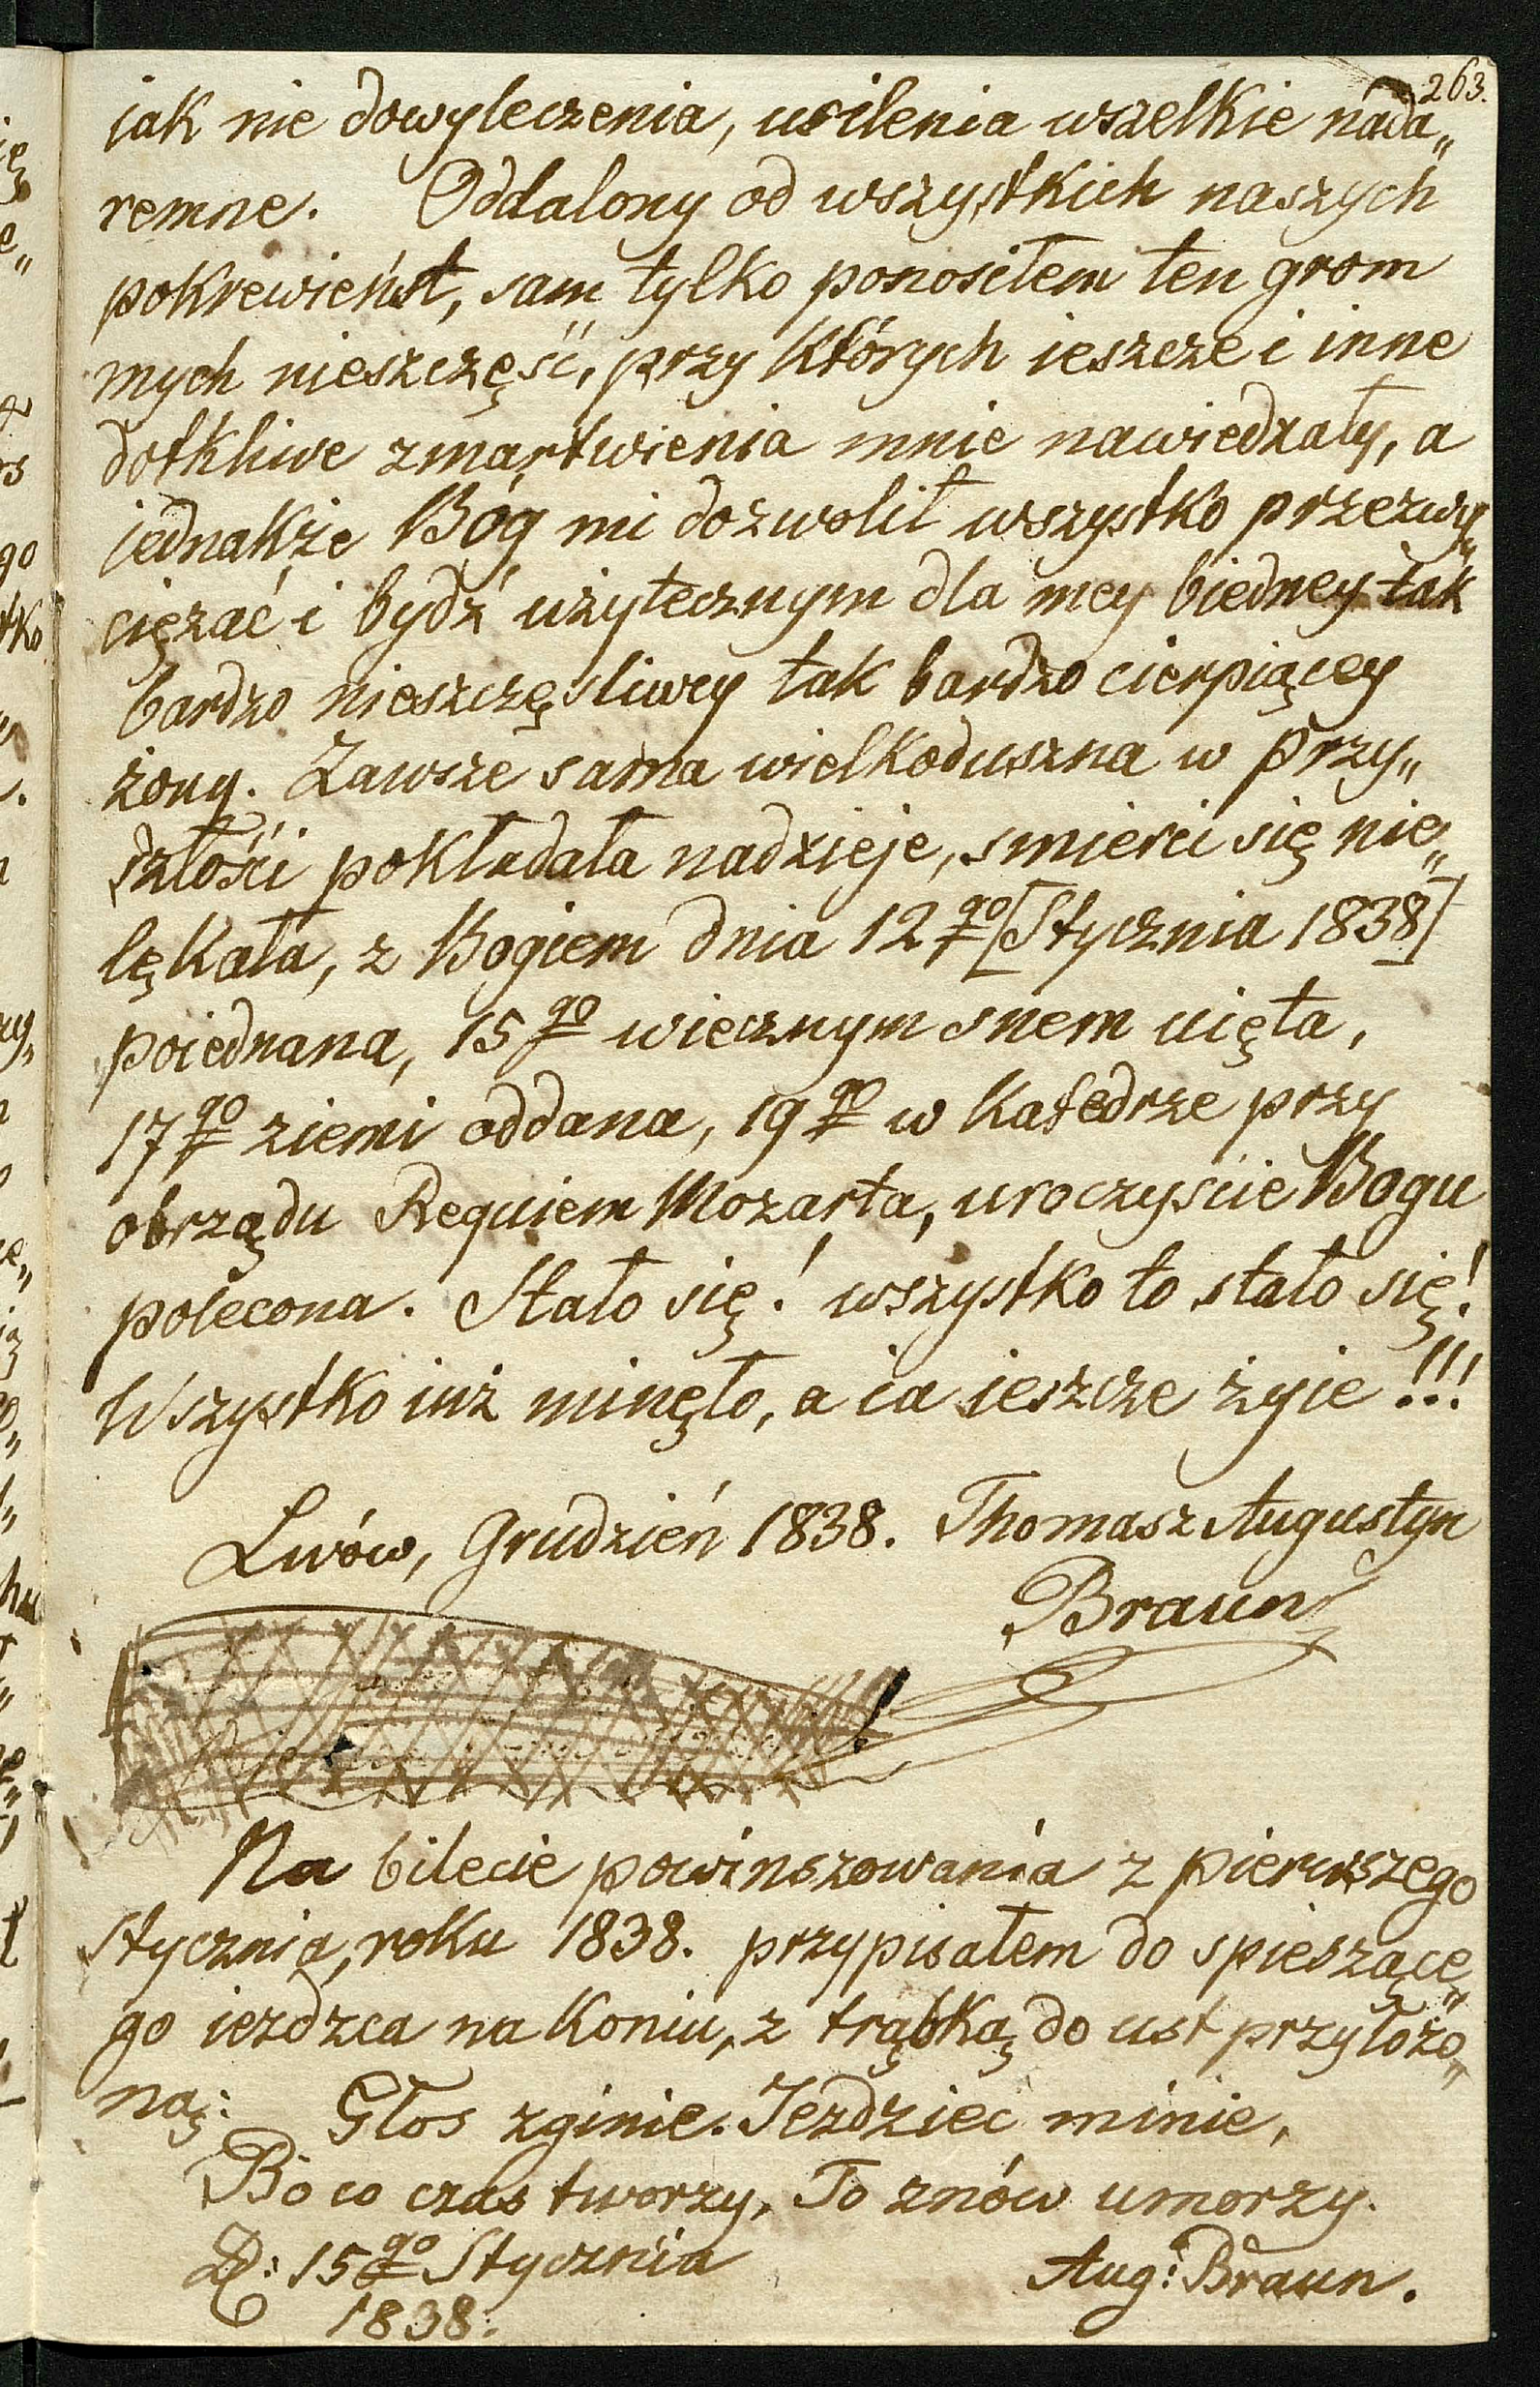 263.
iak nie dowyleczenia, usilenia wszelkie nada„
remne. Oddalony od wszystkich naszych
pokrewieńst, sam tylko ponosiłem ten grom
mych nieszczęść, przy których ieszcze i inne
dotkliwe zmartwienia mnie nawiedzały, a
jednakże Bóg mi dozwolił wszystko przezwy„
ciężać i bydź użytecznym dla mey biedney tak
bardzo nieszczęsliwey tak bardzo cierpiącey
żony. Zawsze sama wielkoduszna w przy„
szłości pokładała nadzieje, smierci się nie„
lękała, z Bogiem dnia 12go [Stycznia 1838]
poiednana, 15go wiecznym snem uięta,
17go ziemi oddana, 19go w Katedrze przy
obrządu Requiem Mozarta, uroczyście Bogu
polecona. Stało się! wszystko to stało się!
Wszystko iuż minęło, a ia ieszcze żyie!!!
Lwów, Grudzień 1838. Thomasz Augustyn
Braun
Na bilecie powinszowania z pierwszego
Stycznia, roku 1838. przypisałem do spieszące„
go iezdzca na koniu, z trąbką do ust przyłożo„
ną: Głos zginie. Jezdziec minie,
Bo co czas tworzy, To znów umorzy.
D: 15go Stycznia
1838. Aug: Braun.